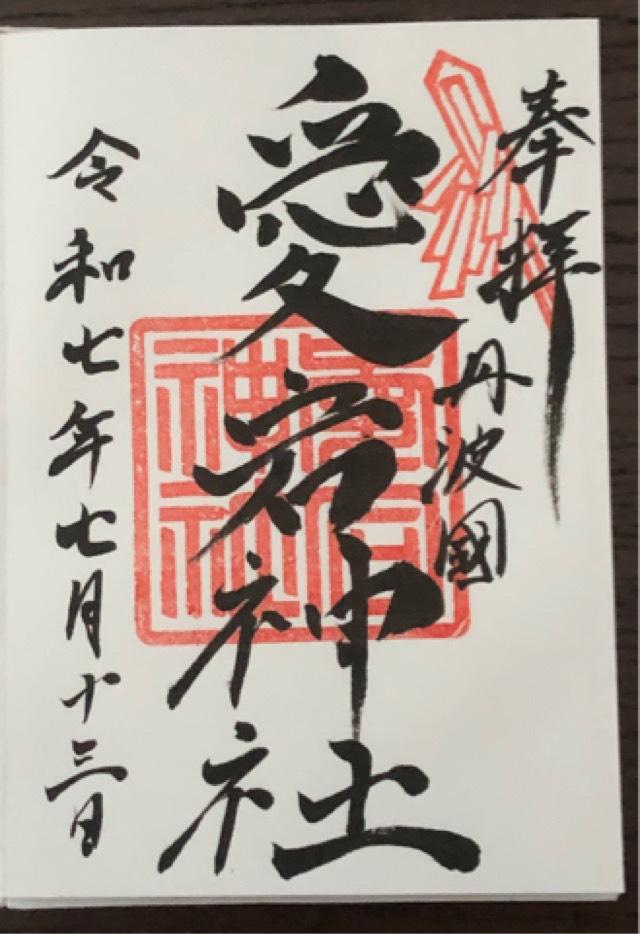 奉拝
丹波國
愛宕神社
令和七年七月十三日